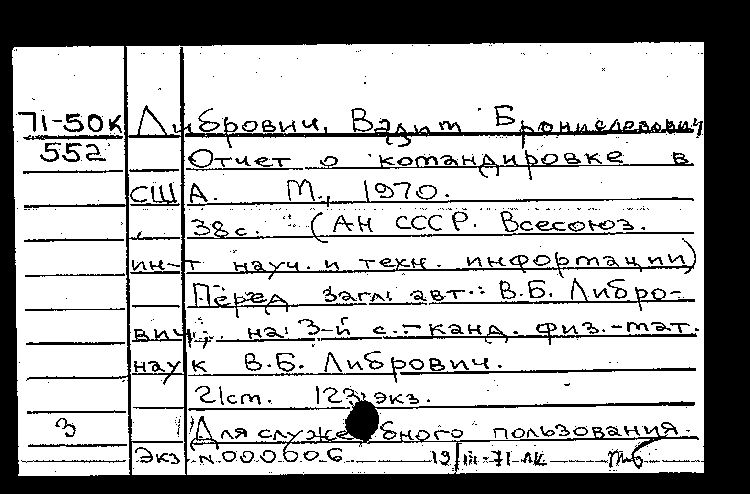 71-50к Либрович, Вадим Брониславович
552 Отчет о командировке в
США. М., 1970.
38с. (АН СССР. Всесоюз.
ин-т науч. и техн. информации)
Перед загл. авт.: В.Б. Либро-
вич; на 3-й с.- канд. физ.-мат.
наук В.Б. Либрович.
21см. 123 экз.
3 Для служебного пользования.
Экз. N 000006 19/III-71